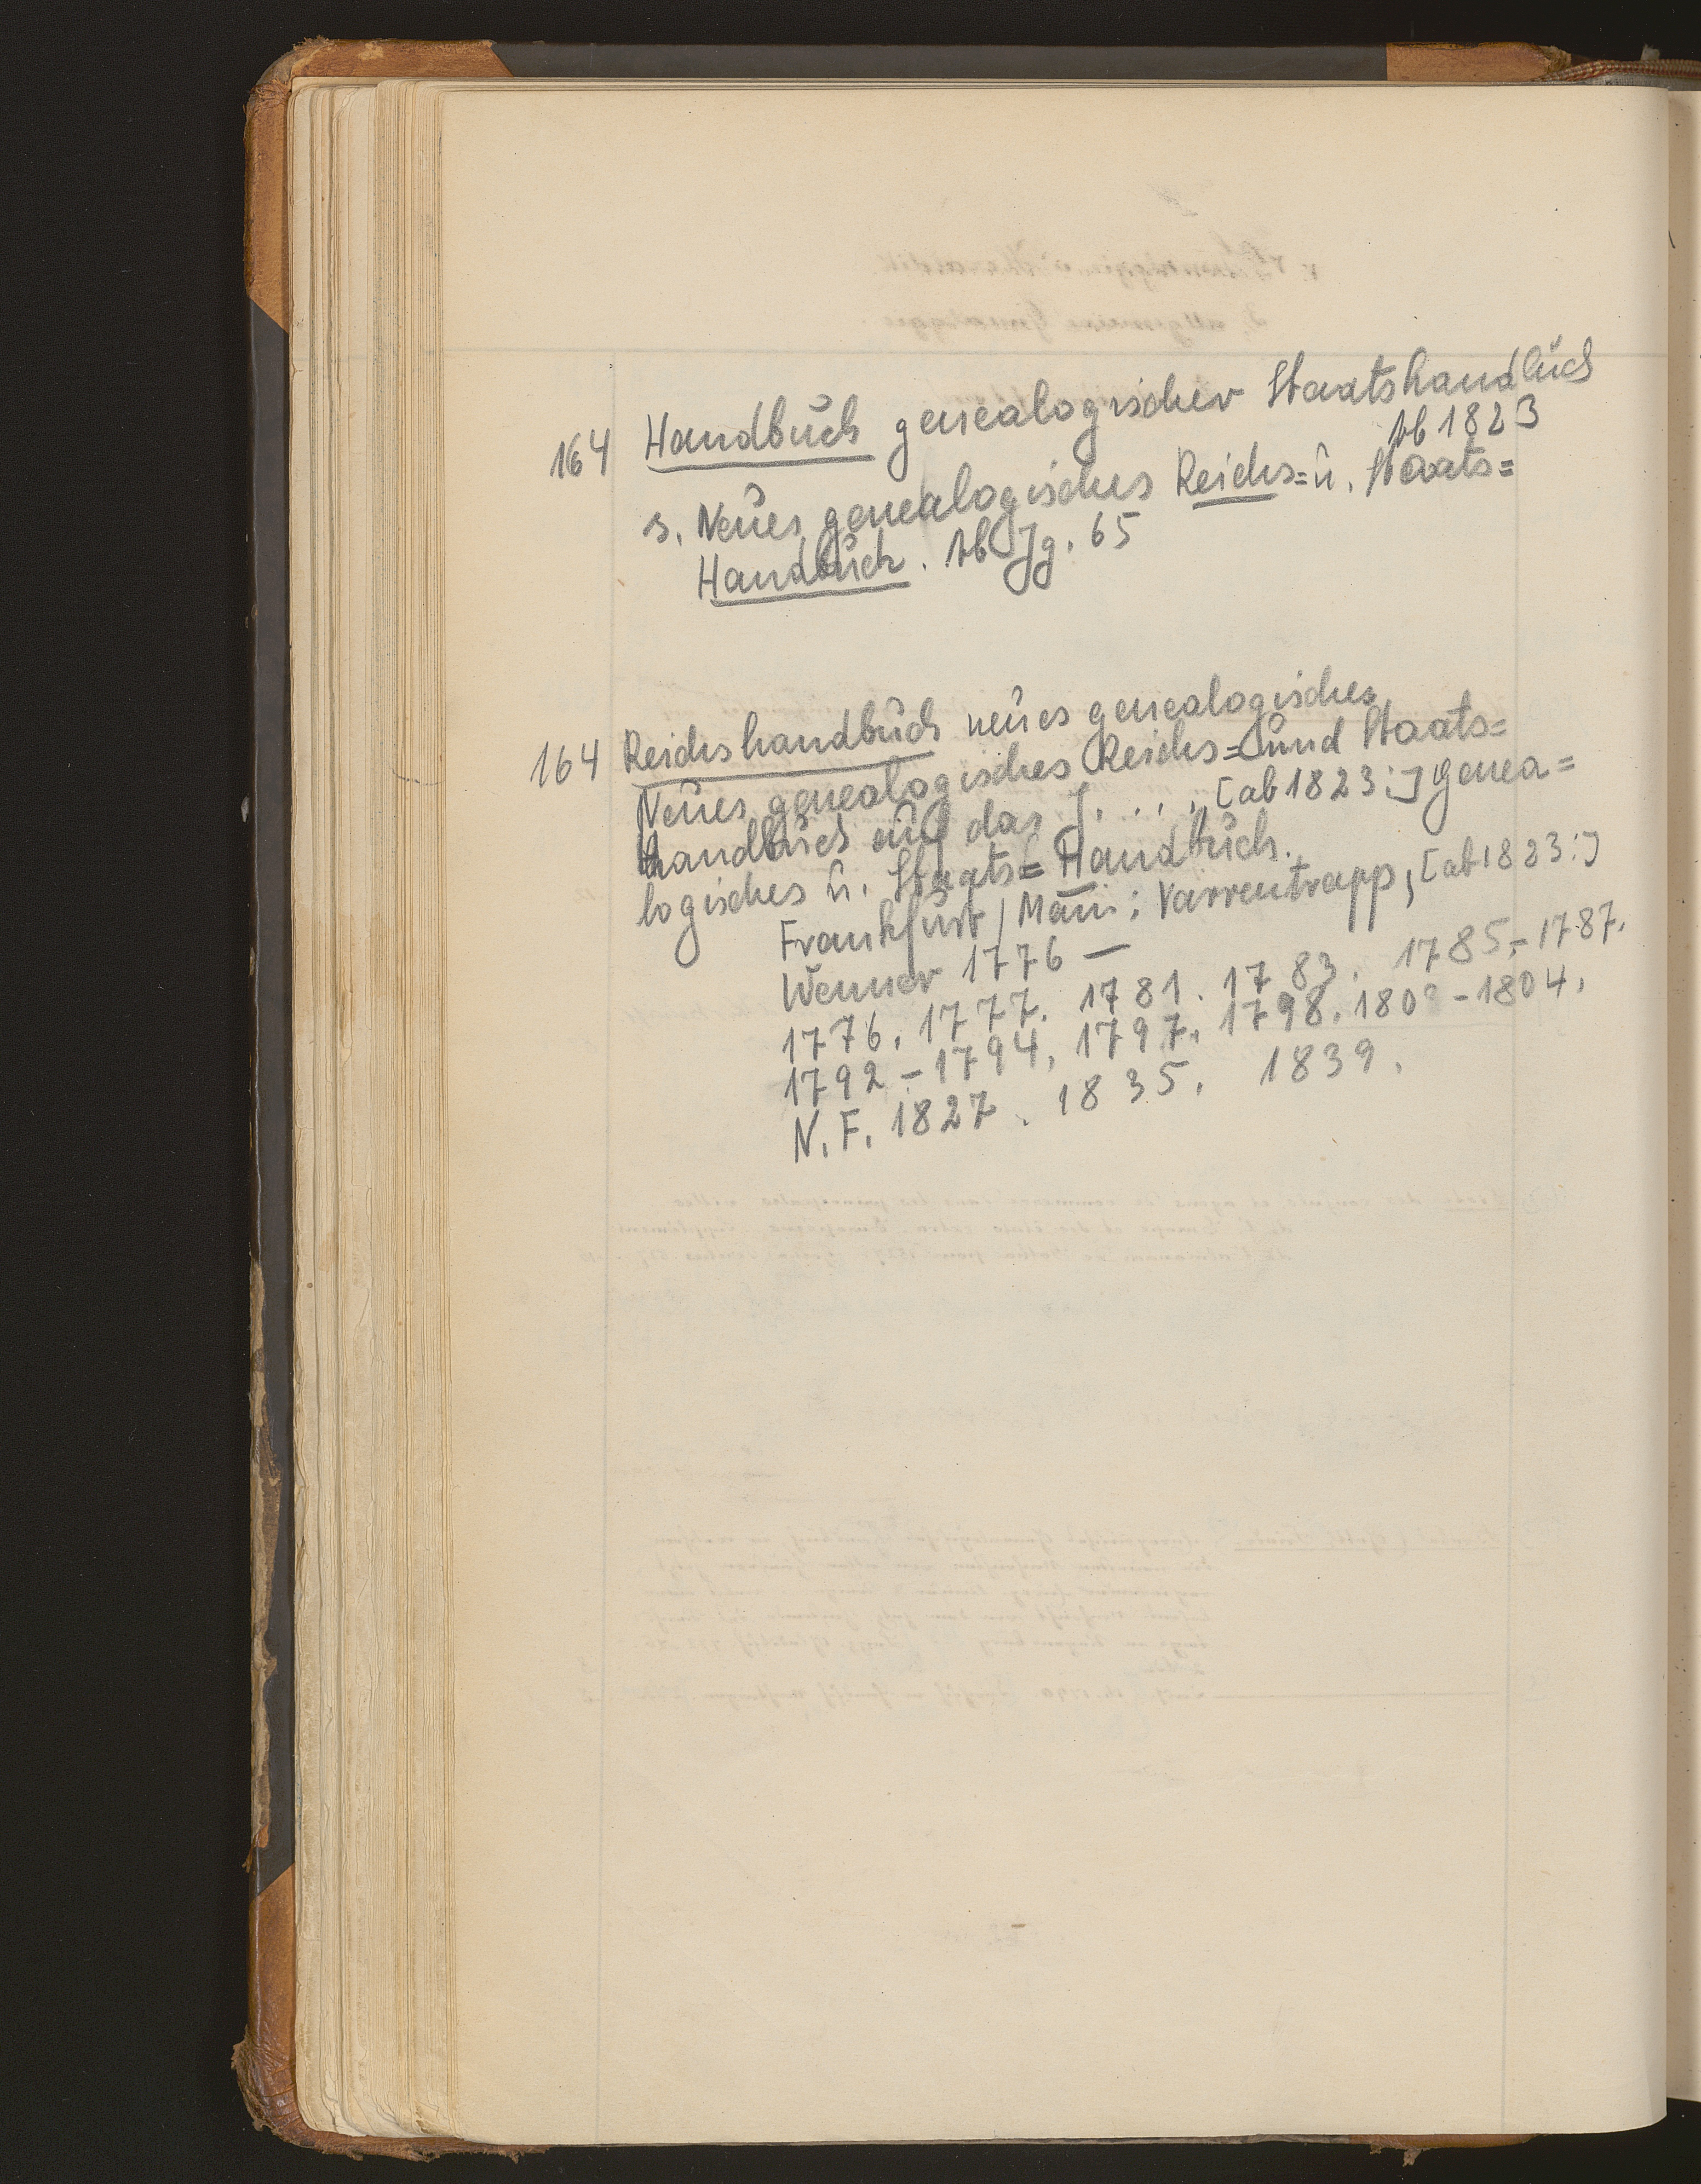 164 Handbuch genealogischer Staatshandbuch
Ab 1823
s. Neues genealogisches Reichs= u. Staats=
Handbuch. Ab Jg. 65
164 Reichshandbuch neues genealogisches
Neues genealogisches Reichs= und Staats=
handbuch auf das J. . . . , [ab 1823:] Genea=
logisches u. Staats= Handbuch.
Frankfurt / Main: Varrentrapp, [ab 1823:]
Wenner 1776 —
1776. 1777. 1781. 1783. 1785.-1787.
1792.-1794. 1797. 1798. -1804.
N. F. 1827. 1835. 1839.